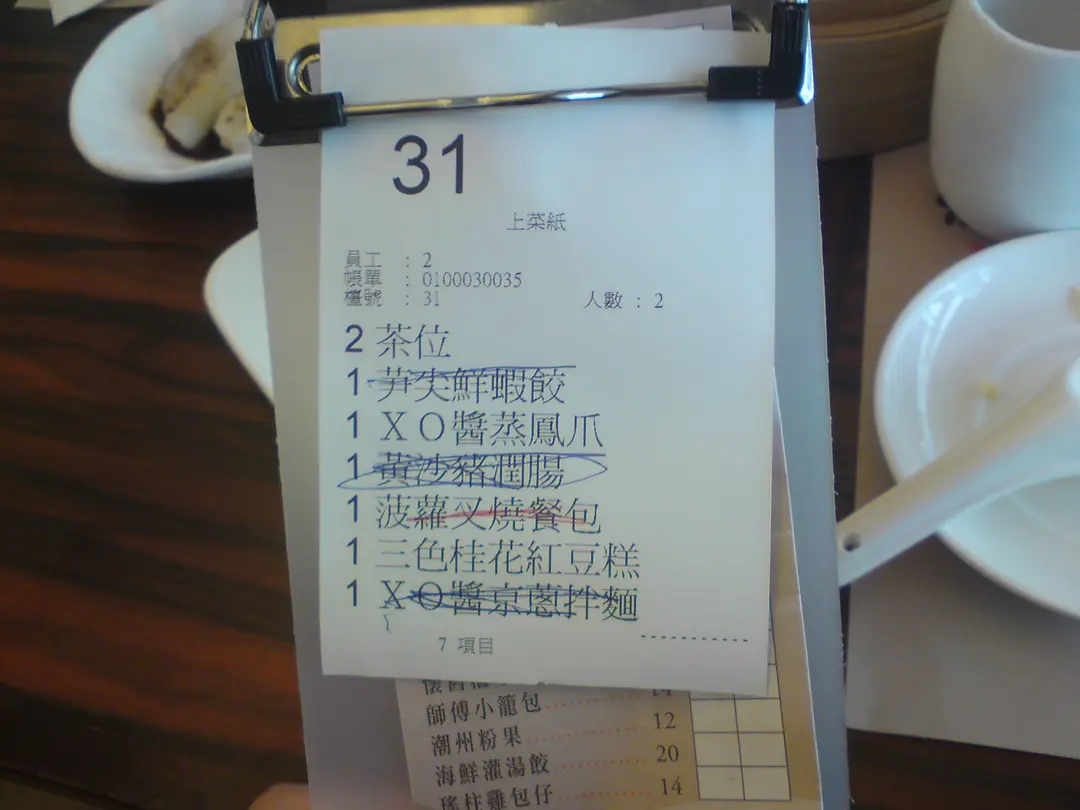 31
上菜紙
員工 : 2
帳單 : 0100030035
檯號 : 31 人數 : 2
2 茶位
1 笋尖鮮蝦餃
1 ＸＯ醬蒸鳳爪
1 黃沙豬潤腸
1 菠蘿叉燒餐包
1 三色桂花紅豆糕
1 ＸＯ醬京蔥拌麵
7 項目
14
師傅小籠包 12
潮州粉果 20
海鮮灌湯餃 14
瑤柱雞包仔